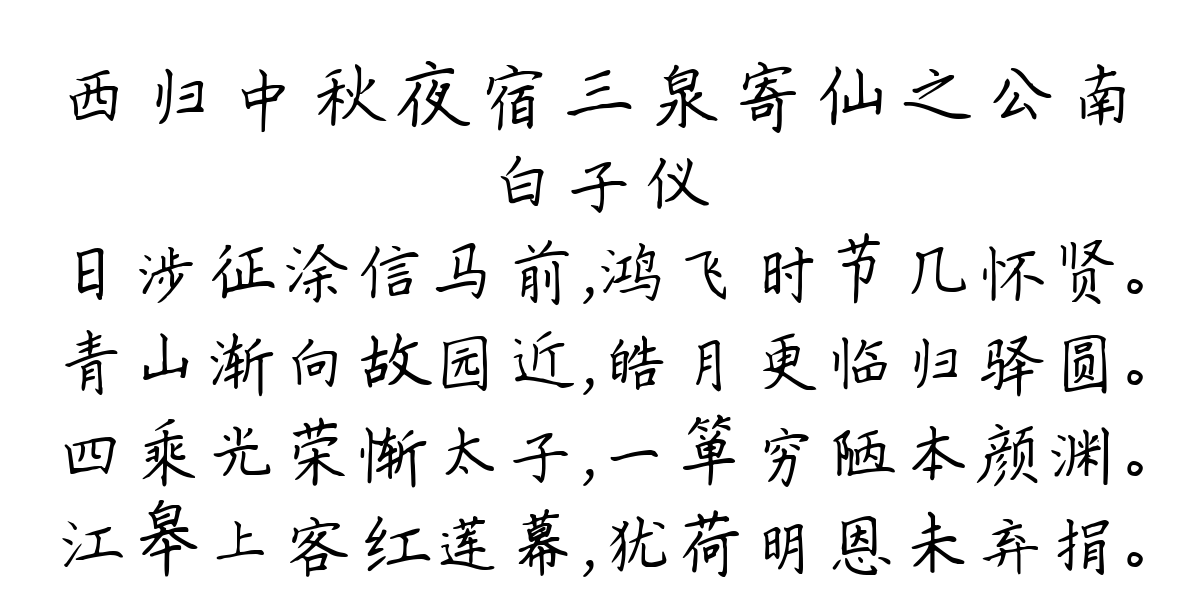 西归中秋夜宿三泉寄仙之公南
白子仪
日涉征涂信马前,鸿飞时节几怀贤。
青山渐向故园近,皓月更临归驿圆。
四乘光荣惭太子,一箪穷陋本颜渊。
江皋上客红莲幕,犹荷明恩未弃捐。